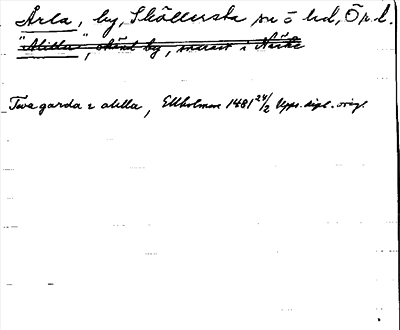 Ärla, by, Sköllersta sn o hd, Ö.n.l.
"Alilla", okänd by, snarast i Närke
Twa garda i alilla, Ekholmen 1481 24/2 Upps. dipl. orig.